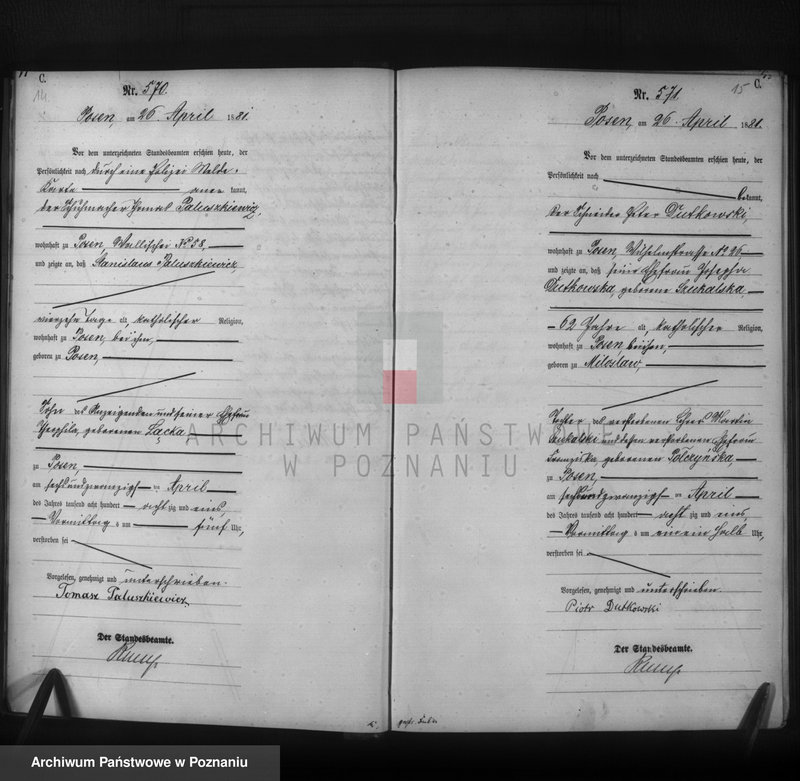 C.
14
Nr. 570.
Posen, am 26. April 1881.
Vor dem unterzeichneten Standesbeamten erschien heute, der
Persönlichkeit nach durch eine Polizei Melde-
Karte anerkannt,
der Schuhmacher Paluszkiewicz,
wohnhaft zu Posen, Wallischei No 88,
und zeigte an, daß Stanislaus Paluszkiewicz,
vierzehn Tage alt, katholischer Religion,
wohnhaft zu Posen, bei ihm,
geboren zu Posen,
Sohn des Anzeigenden und seiner Ehefrau
Theophila, geborenen Łącka
zu Posen,
am sechsundzwanzigsten April
des Jahres tausend acht hundert achtzig und eins,
Vormittag s um fünf Uhr,
verstorben sei
Vorgelesen, genehmigt und unterschrieben.
Tomasz Paluszkiewicz
Der Standesbeamte.
15
C.
Nr. 571.
Posen, am 26. April 1881.
Vor dem unterzeichneten Standesbeamten erschien heute, der
Persönlichkeit nach
bekannt,
der Schneider Peter Dutkowski
wohnhaft zu Posen, Wilhelmstrasse No 26
und zeigte an, daß seine Ehefrau Josepha
Dutkowska, geborene Szukalska
62 Jahre alt, katholischer Religion,
wohnhaft zu Posen bei ihm,
geboren zu Miloslaw,
Tochter des verstorbenen Martin
Szukalski und dessen verstorbenen Ehefrau
Franziska, geborenen Połczyńska,
zu Posen,
am sechsundzwanzigsten April
des Jahres tausend acht hundert achtzig und eins,
Vormittag s um ein ein halb Uhr,
verstorben sei
Vorgelesen, genehmigt und unterschrieben.
Piotr Dutkowski
Der Standesbeamte.
ARCHIWUM PAŃSTWOWE
W POZNANIU
Archiwum Państwowe w Poznaniu